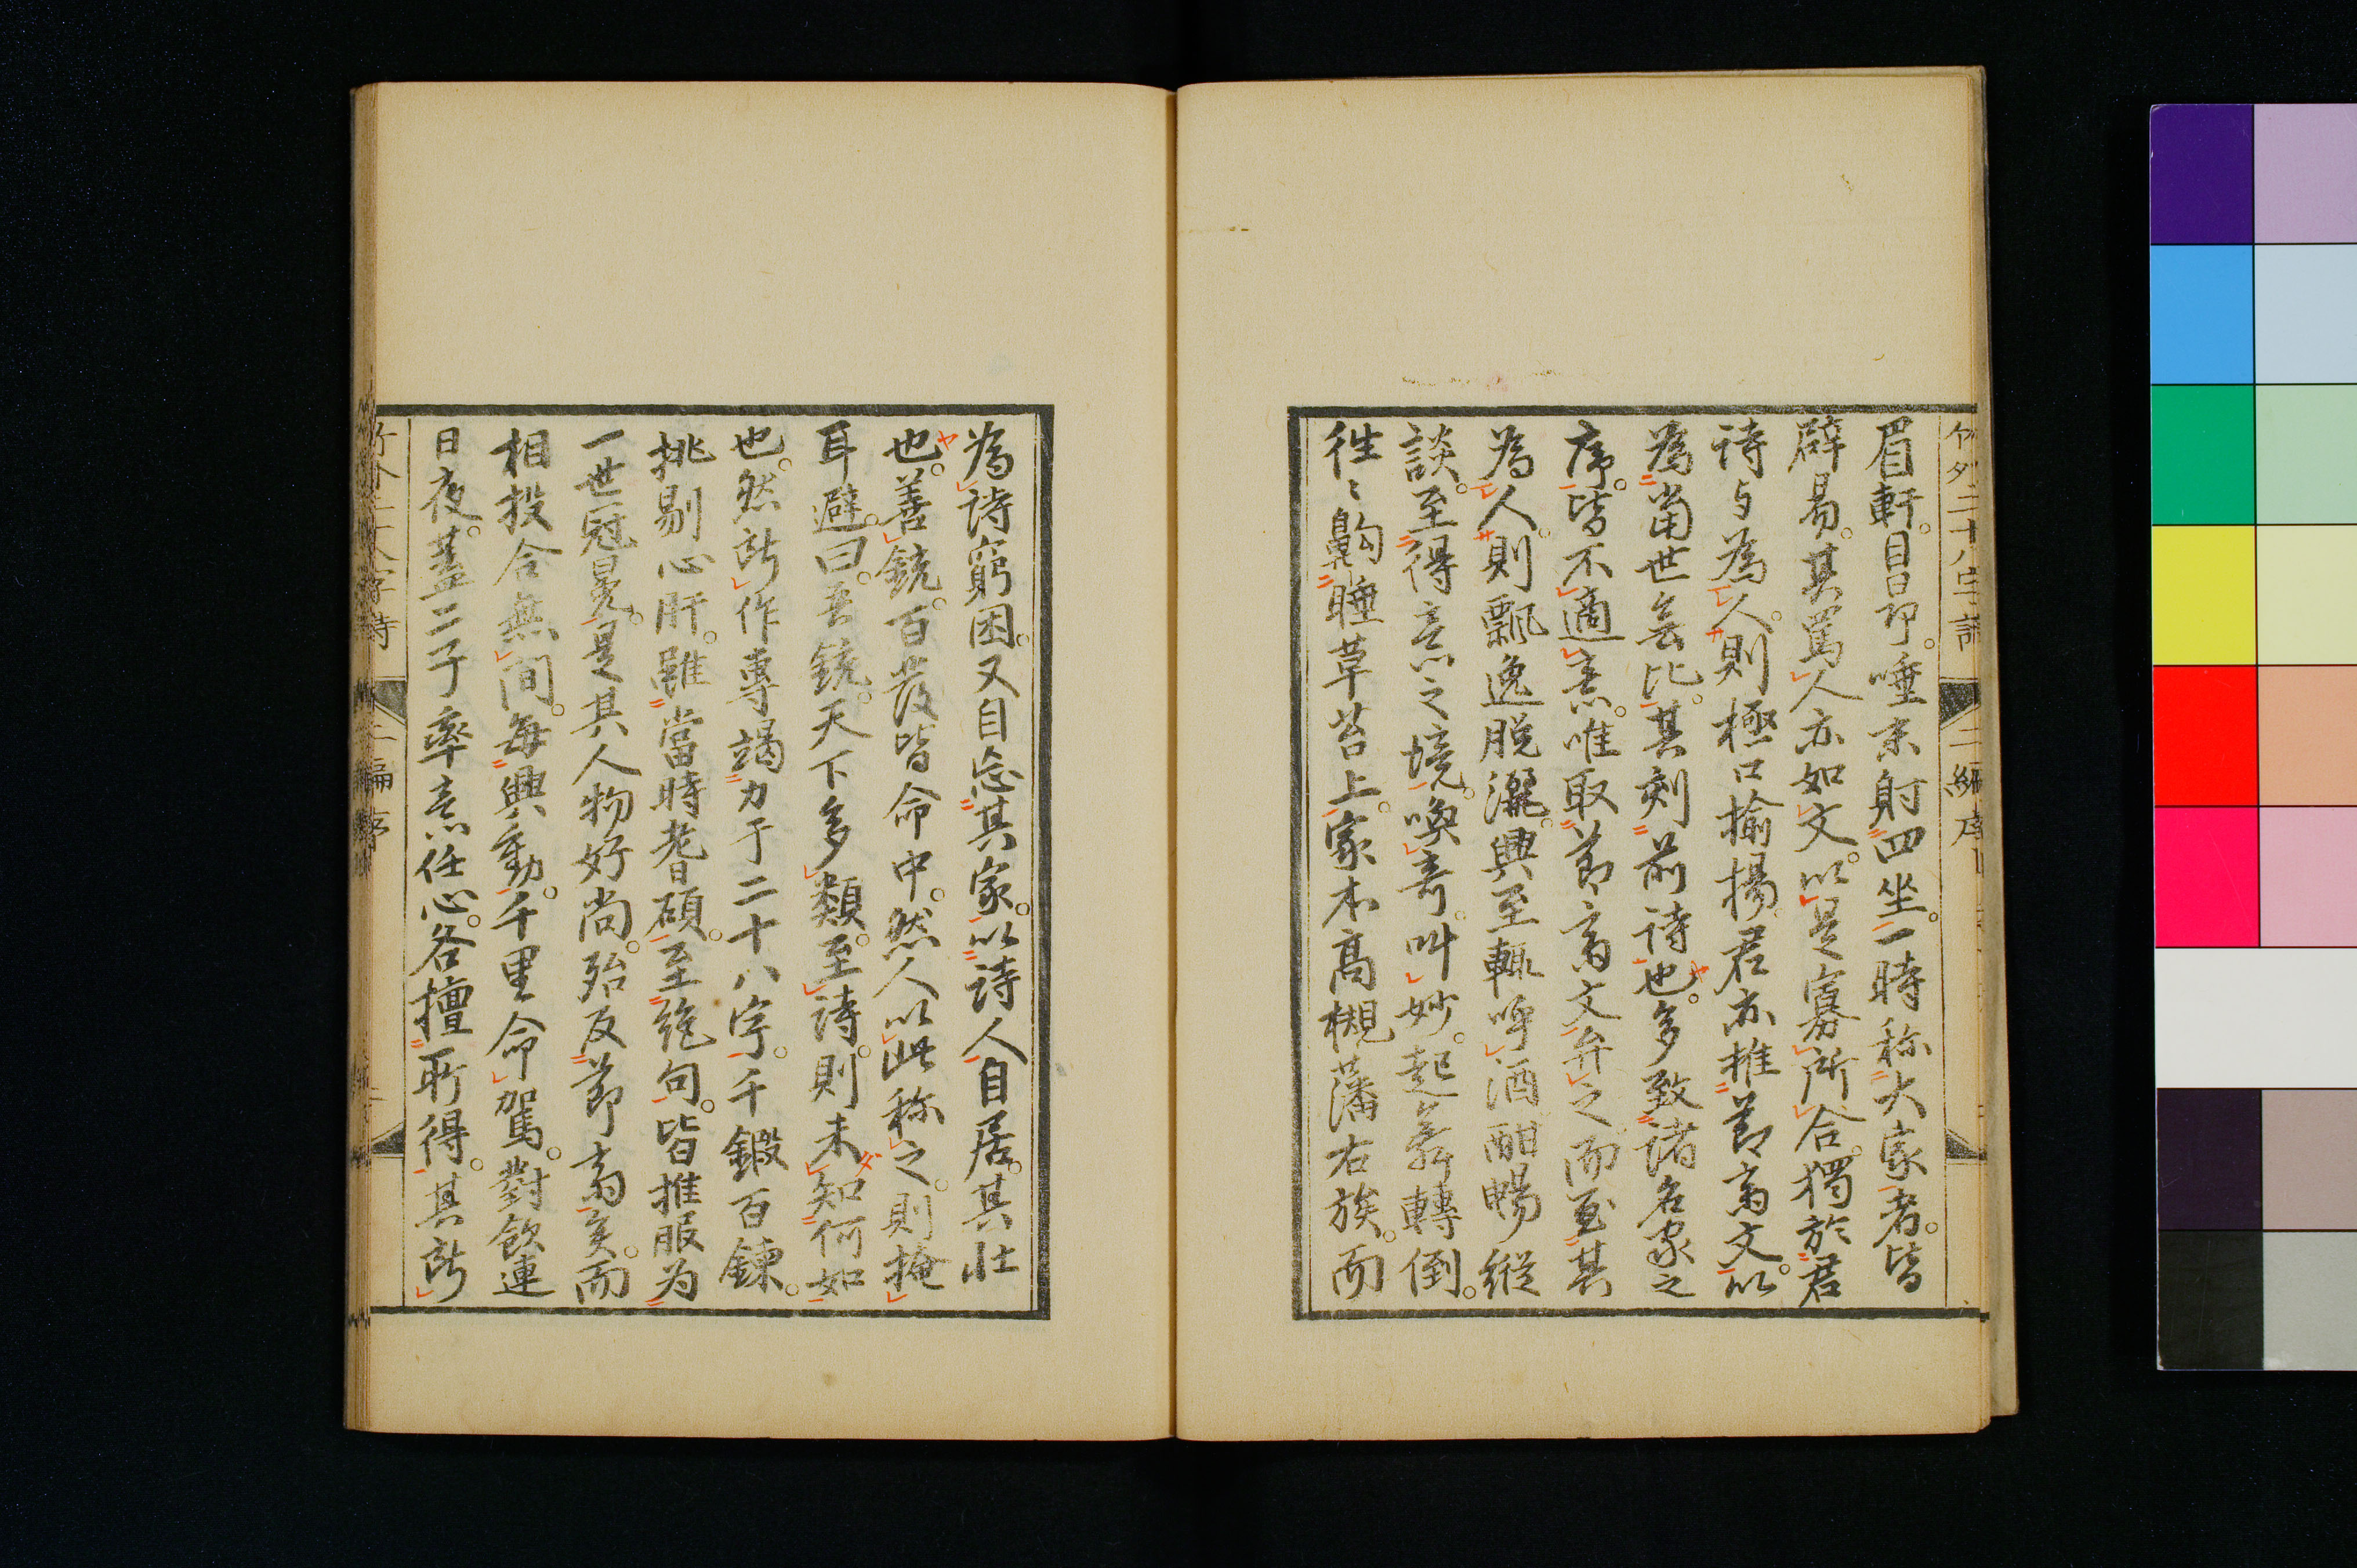 眉軒。目昂。唾末射四坐。一時称大家者。皆
辟易。其罵人亦如文。以是寡所合。獨於君
詩与為人。則極口揄揚。君亦推節斎文。以
為當世無比。其刻前詩也。多致諸名家之
序。皆不適意。唯取節斎文弁之。而至其
為人。則飄逸脱灑。興至輒呼酒酣暢縦
談。至得意之境。喚奇。叫妙。起舞轉倒。
徃〻齁睡草苔上。家本高槻藩右族。而
為詩窮困。又自忘其家。以詩人自居。其壮
也。善銃。百發皆命中。然人以此称之。則掩
耳避。曰。吾銃。天下多類。至詩。則未知何如
也。然所作專竭力于二十八字。千鍛百錬。
挑剔心肝。雖當時耆碩。至絶句。皆推服为
一世冠冕。是其人物好尚。殆反節斎矣。而
相投合無間。毎興動。千里命駕。對飲連
日夜。蓋二子率意任心。各擅所得。其所